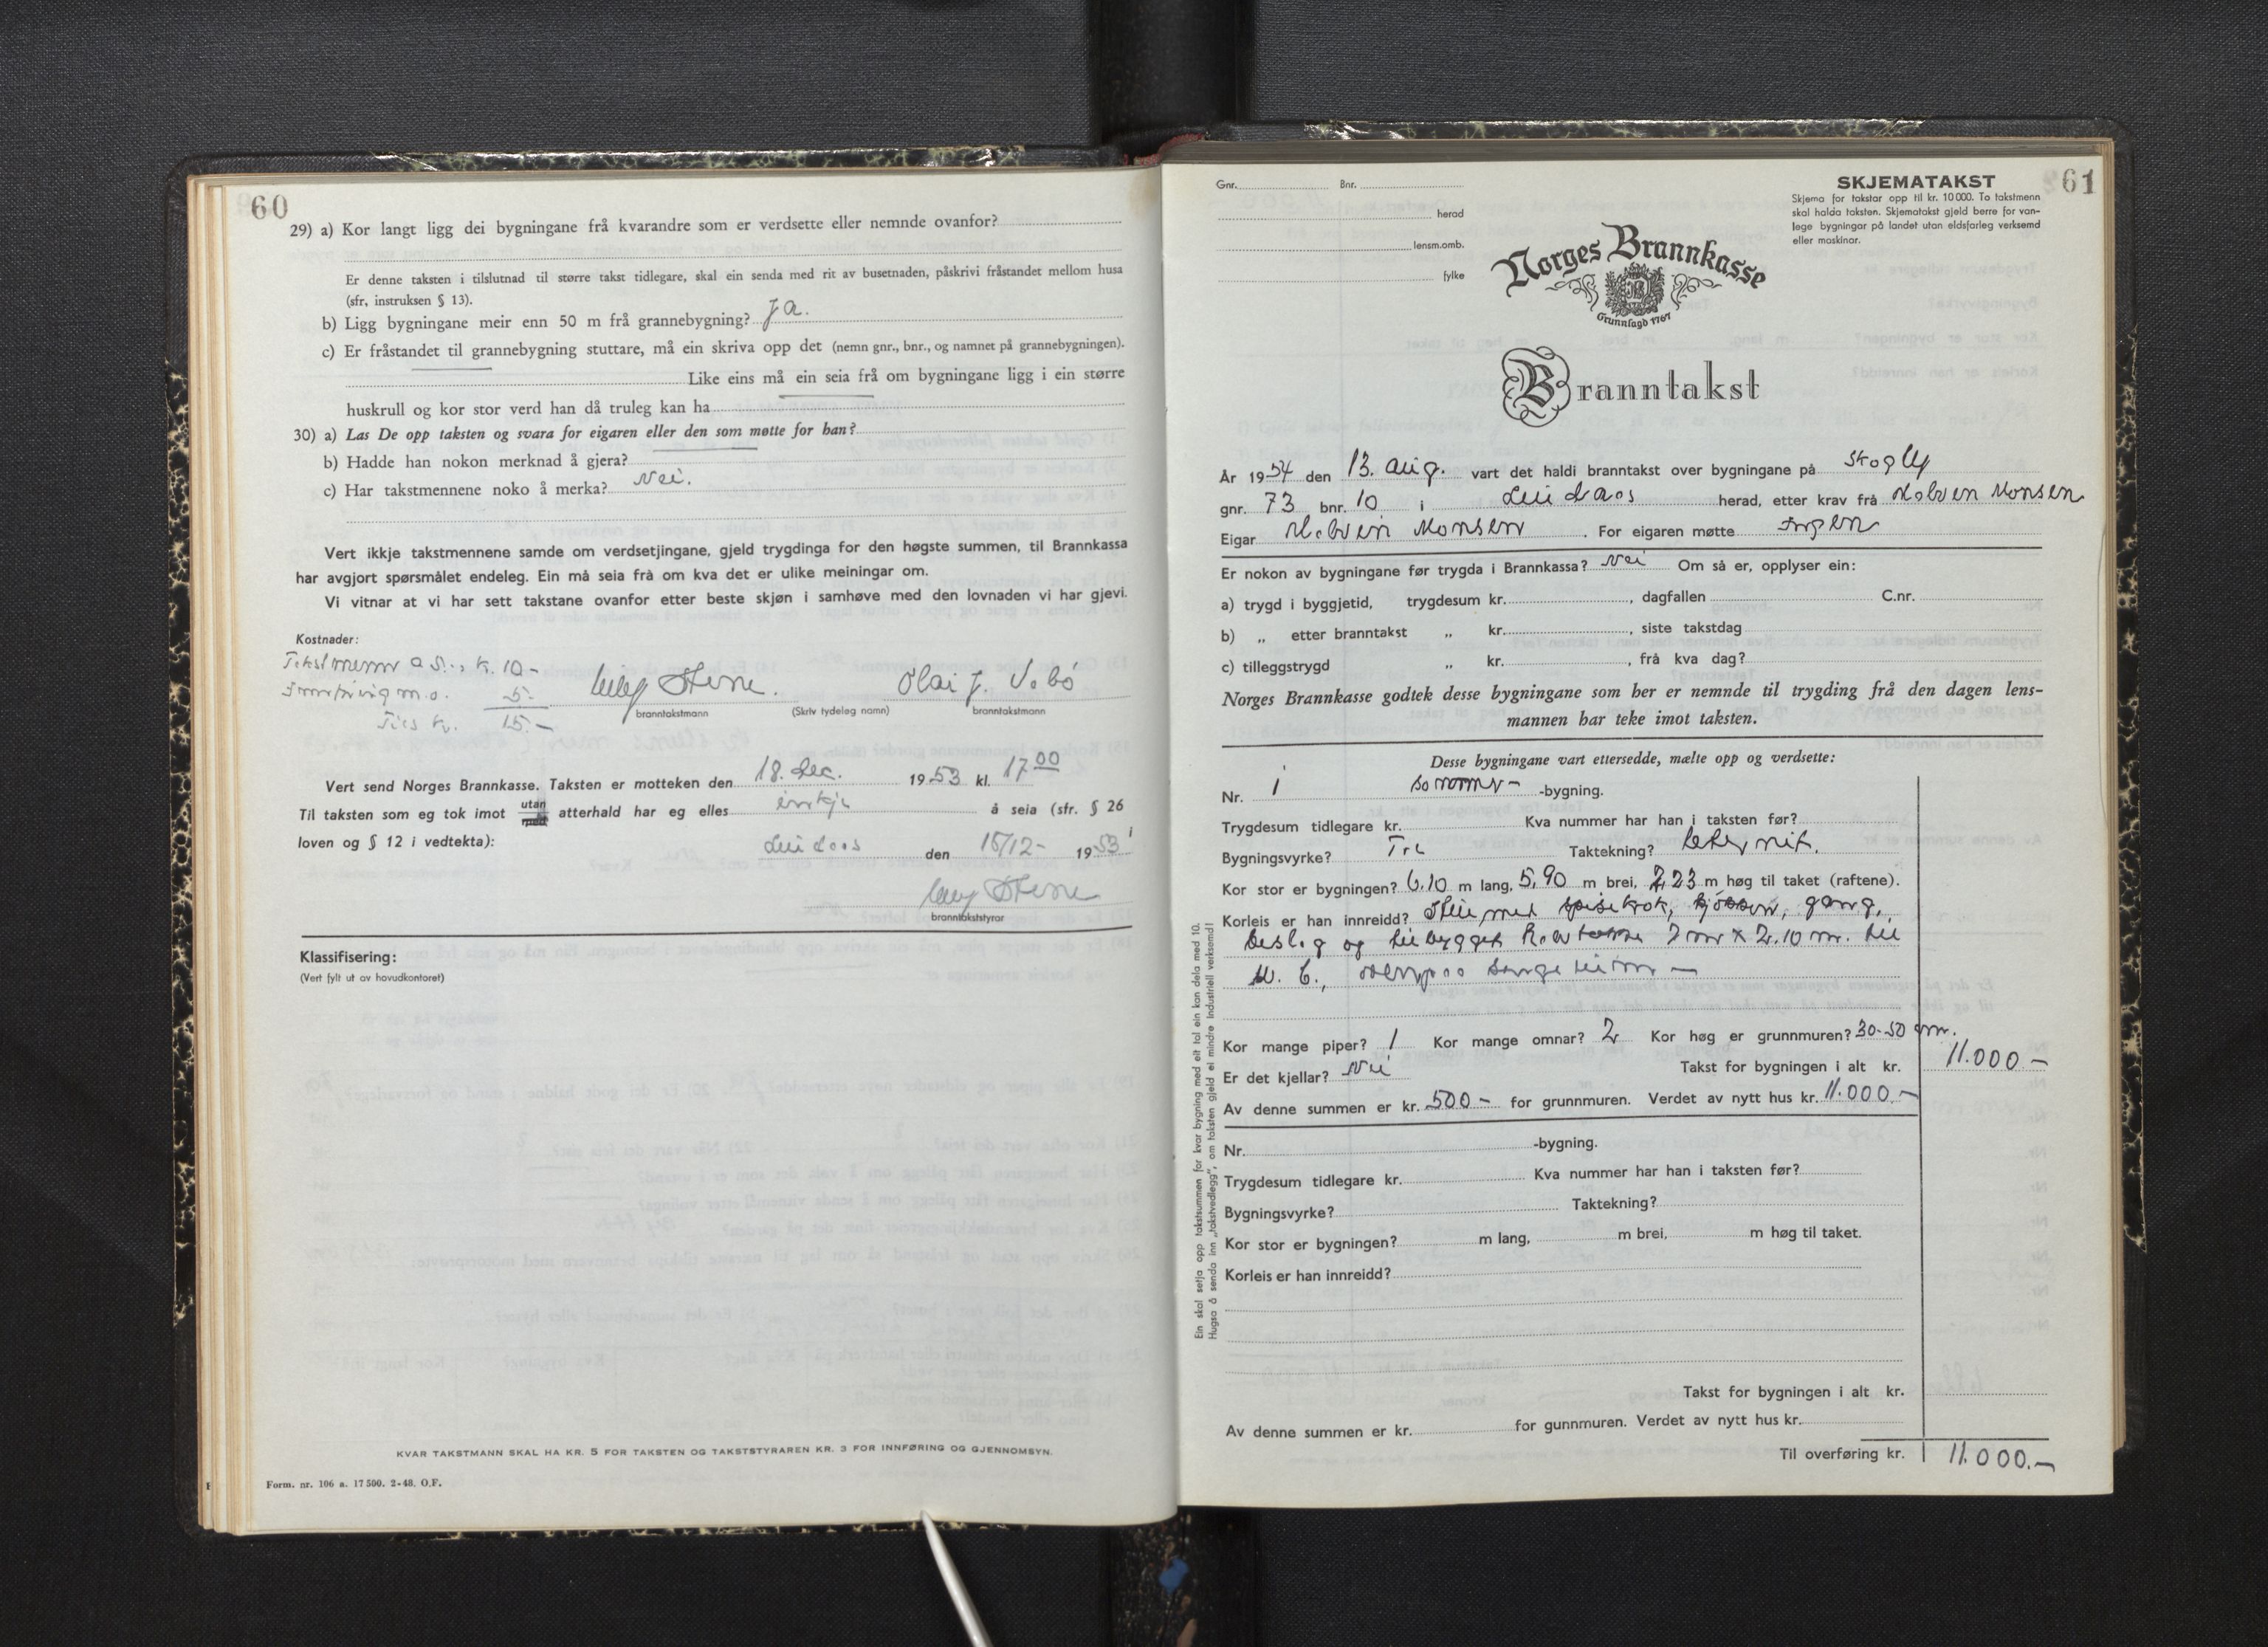 60
29) a) Kor langt ligg dei bygningane frå kvarandre som er verdsette eller nemnde ovanfor?
Er denne taksten i tilslutnad til større takst tidlegare, skal ein senda med rit av busetnaden, påskrivi fråstandet mellom husa
(sfr, instruksen § 13).
b) Ligg bygningane meir enn 50 m frå grannebygning? Ja.
c) Er fråstandet til grannebygning stuttare, må ein skriva opp det (nemn gnr., bnr., og namnet på grannebygningen).
Like eins må ein seia frå om bygningane ligg i ein større
huskrull og kor stor verd han då truleg kan ha
30) a) Las De opp taksten og svara for eigaren eller den som møtte for han?
b) Hadde han nokon merknad å gjera?
c) Har takstmennene noko å merka? Nei.
Vert ikkje takstmennene samde om verdsetjingane, gjeld trygdinga for den høgste summen, til Brannkassa
har avgjort spørsmålet endeleg. Ein må seia frå om kva det er ulike meiningar om.
Vi vitnar at vi har sett takstane ovanfor etter beste skjøn i samhøve med den lovnaden vi har gjevi.
Kostnader:
Takstmenn a 5., k. 10 -
Innføring m.o. 5.
kr. 15. -
Stene. Olai J.
branntakstmann (Skriv tydeleg namn) branntakstmann
Vert send Norges Brannkasse. Taksten er motteken den 18. des. 1953 kl. 17 00
Til taksten som eg tok imot utan med atterhald har eg elles innkje å seia (sfr. § 26
loven og § 12 i vedtekta):
Lindaas den 18/12 - 1953
Stene
branntakststyrar
Klassifisering:
(Vert fylt ut av hovudkontoret)
KVAR TAKSTMANN SKAL HA KR. 5 FOR TAKSTEN OG TAKSTSTYRAREN KR. 3 FOR INNFØRING OG GJENNOMSYN.
Form. nr. 106 a. 17 500. 2-48. O.F.
61
Gnr. Bnr.
herad
lensm.omb.
fylke
SKJEMATAKST
Skjema for takstar opp til kr. 10 000. To takstmenn
skal halda taksten. Skjematakst gjeld berre for van-
lege bygningar på landet utan eldsfarleg verksemd
eller maskinar.
Norges Brannkasse
Grunnlagd 1767
Branntakst
År 1954 den 13. aug. vart det haldi branntakst over bygningane på Skogly
gnr. 73 bnr. 10 i Lindaas herad, etter krav frå Monsen
Eigar Monsen. For eigaren møtte Ingen
Er nokon av bygningane før trygda i Brannkassa? Nei Om så er, opplyser ein:
a) trygd i byggjetid, trygdesum kr. , dagfallen C.nr.
b) „ etter branntakst „ kr. , siste takstdag
c) tilleggstrygd „ kr. , frå kva dag?
Norges Brannkasse godtek desse bygningane som her er nemnde til trygding frå den dagen lens-
mannen har teke imot taksten.
Desse bygningane vart ettersedde, mælte opp og verdsette:
Nr. 1 sommer- -bygning.
Trygdesum tidlegare kr. Kva nummer har han i taksten før?
Bygningsvyrke? Tre Taktekning? Eternit.
Kor stor er bygningen? 6.10 m lang, 5,90 m brei, 2,23 m høg til taket (raftene).
Korleis er han innreidd? Stue med spisekrok, kjøkken, gang,
beslag og tilbygget 2 m x 2.10 m. til
W. C.,
Kor mange piper? 1 Kor mange omnar? 2 Kor høg er grunnmuren? 30-50 cm.
Er det kjellar? Nei Takst for bygningen i alt kr. 11.000 -
Av denne summen er kr. 500 - for grunnmuren. Verdet av nytt hus kr. 11.000. -
Nr. -bygning.
Trygdesum tidlegare kr. Kva nummer har han i taksten før?
Bygningsvyrke? Taktekning?
Kor stor er bygningen? m lang, m brei, m høg til taket.
Korleis er han innreidd?
Takst for bygningen i alt kr.
Av denne summen er kr. for gunnmuren. Verdet av nytt hus kr.
Til overføring kr. 11.000. -
Ein skal setja opp takstsummen for kvar bygning med eit tal ein kan dela med 10.
Hugsa å senda inn „takstvedlegg", om taksten gjeld ei mindre industriell verksemd!